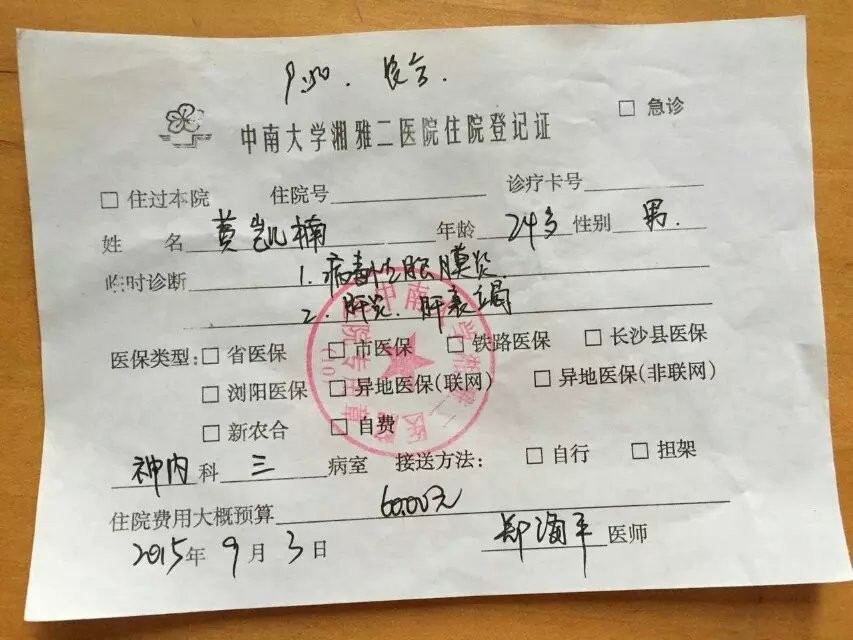 □ 急诊
中南大学湘雅二医院住院登记证
□ 住过本院 住院号 诊疗卡号
姓 名 黄凯楠 年龄 24岁 性别 男.
临时诊断 1. 病毒性脑膜炎.
2. 肝炎. 肝衰竭
医保类型: □ 省医保 □ 市医保 □ 铁路医保 □ 长沙县医保
□ 浏阳医保 □ 异地医保(联网) □ 异地医保(非联网)
□ 新农合 □ 自费
神内 科 三 病室 接送方法: □ 自行 □ 担架
住院费用大概预算 6000元
2015年 9月 3日 医师